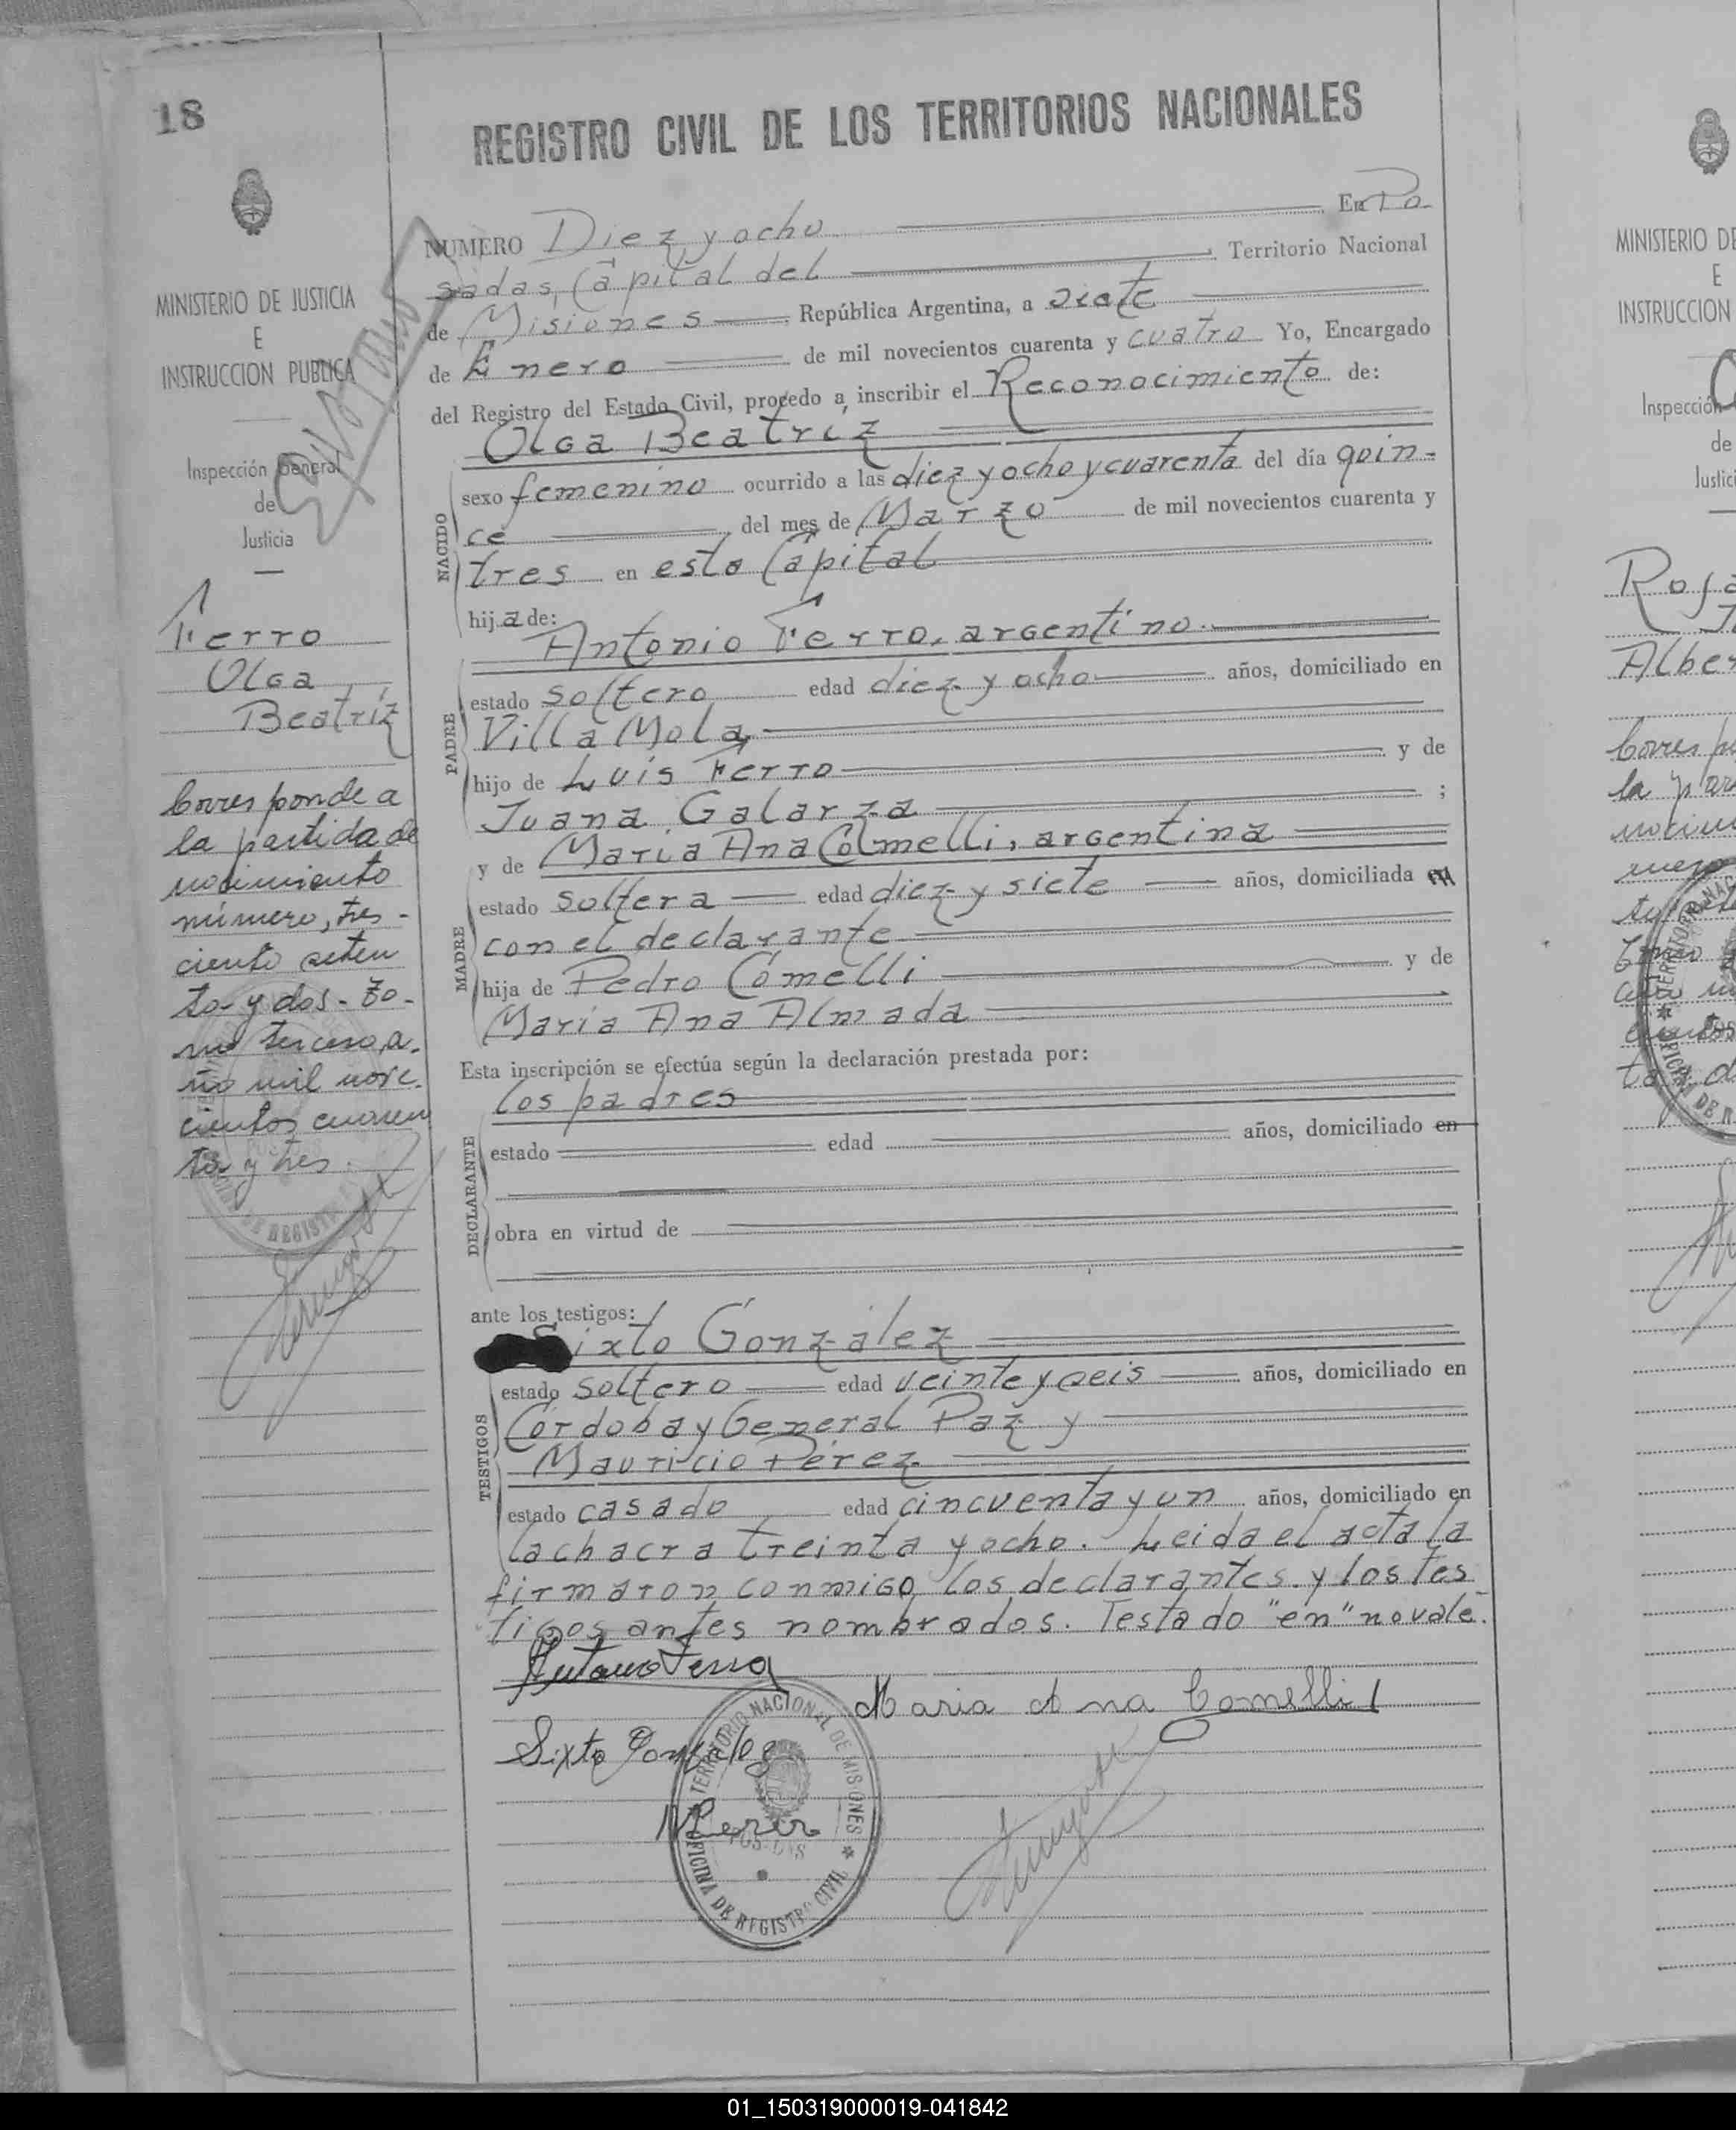 18
MINISTERIO DE JUSTICIA
E
INSTRUCCION PUBLICA
Inspección General
de
Justicia
Ferro
Olga
Beatríz
Corresponde a
la partida de
nacimiento
número, tres-
ciento seten
ta y dos - To-
mo tercero, a-
ño mil nove-
cientos cuaren
ta y tres.
REGISTRO CIVIL DE LOS TERRITORIOS NACIONALES
NUMERO Diez y ocho En Po-
sadas, Capital del Territorio Nacional
de Misiones República Argentina, a siete
de Enero de mil novecientos cuarenta y cuatro Yo, Encargado
del Registro del Estado Civil, procedo a inscribir el Reconocimiento de:
Olga Beatríz
NACIDO
sexo femenino ocurrido a las diez y ocho y cuarenta del día quin-
ce del mes de Marzo de mil novecientos cuarenta y
tres en esta Capital
hija de:
Antonio Ferro, argentino.
PADRE
estado soltero edad diez y ocho años, domiciliado en
Villa Mola,
hijo de Luis Ferro y de
Juana Galarza ;
y de Maria Ana Comelli, argentina
MADRE
estado soltera edad diez y siete años, domiciliada en
con el declarante
hija de Pedro Comelli y de
Maria Ana Almada
Esta inscripción se efectúa según la declaración prestada por:
los padres
DECLARANTE
estado edad años, domiciliado en
obra en virtud de
ante los testigos:
Sixto González
TESTIGOS
estado soltero edad veinte y seis años, domiciliado en
Córdoba y General Paz y
Mauricio Pérez
estado casado edad cincuenta y un años, domiciliado en
la chacra treinta y ocho. Leida el acta la
firmaron conmigo los declarantes y los tes
tigos antes nombrados. Testado "en" no vale.
Antonio Ferro
Maria Ana Comelli
Sixto Gonzalez
M Perez
TERRITORIO NACIONAL DE MISIONES
POSADAS
OFICINA DE REGISTRO CIVIL
MINISTERIO DE
E
INSTRUCCION
Inspección
de
Justic
Rosa
Alber
Corres po
la par
01_150319000019-041842